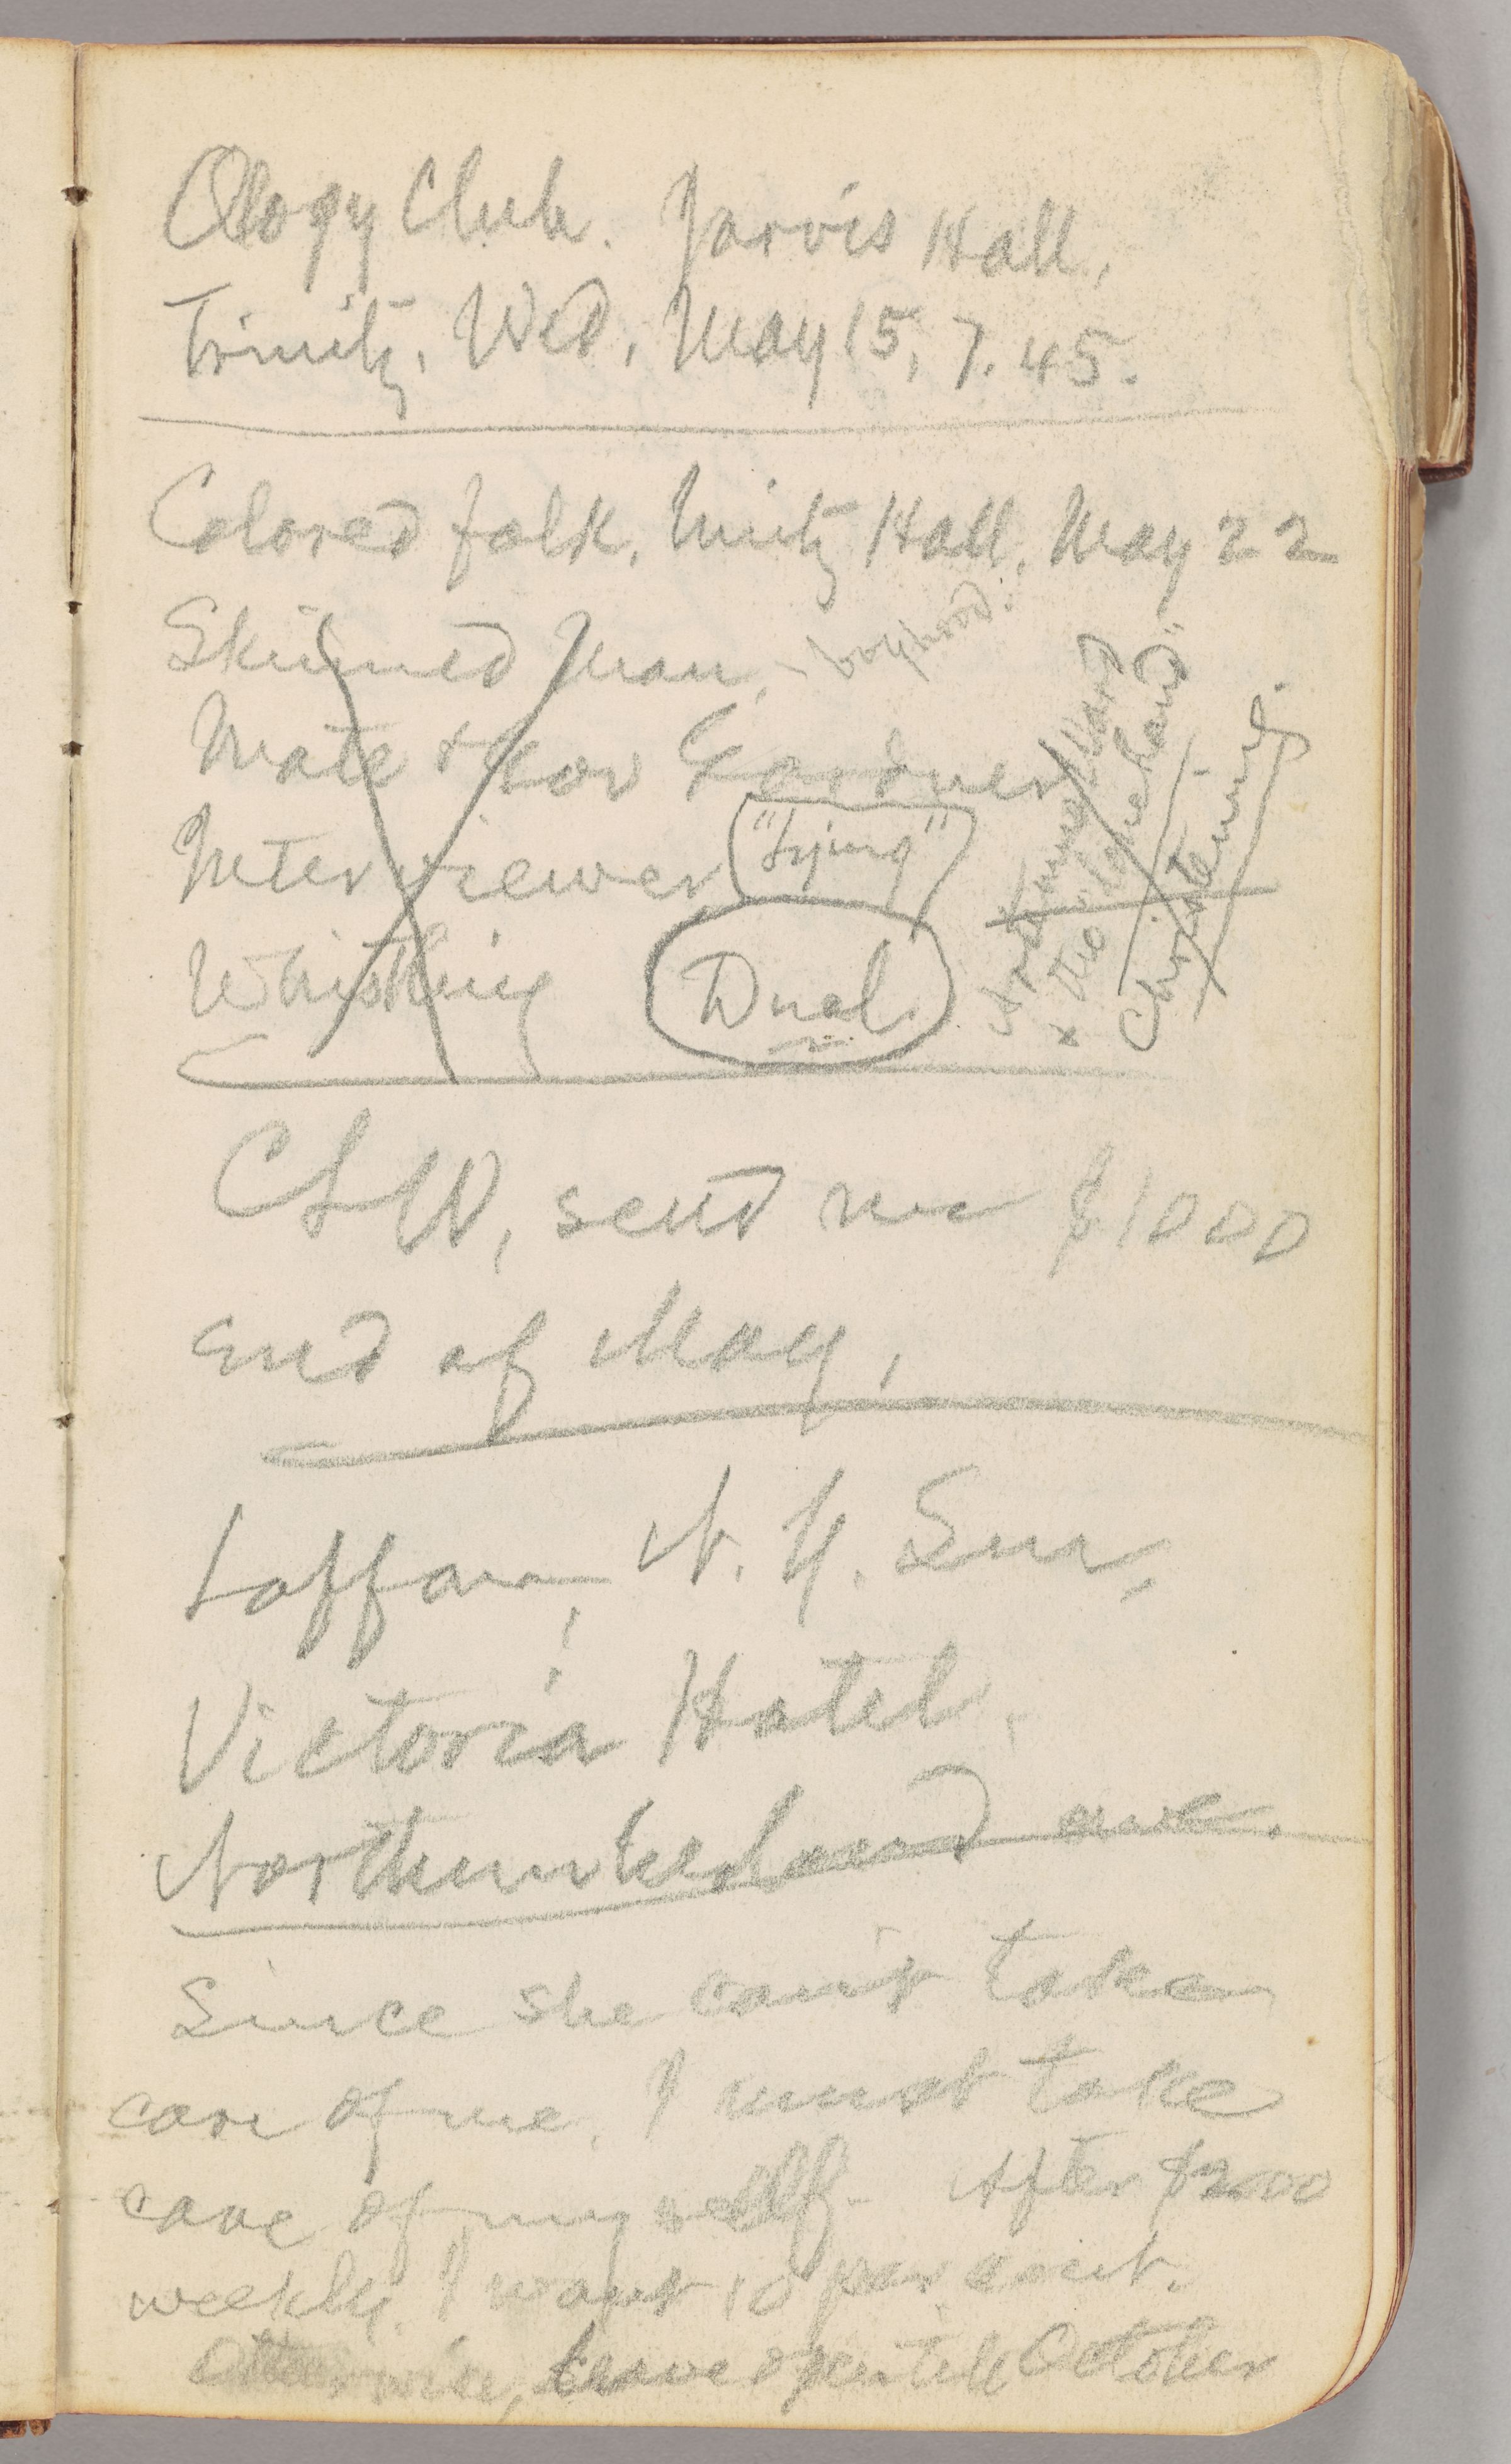 Ology Club. Jarvis Hall,
Trinity, Wed, May 15, 7.45.
Colored folk, Unity Hall, May 22
Skinned Man, – boyhood.
Mate & Gov Gardner
Interviewer "Lying"
Whistling Duel.
Christening.
CLW, send me $1000
end of May,
Laffan, N. Y. Sun,
Victoria Hotel,
Northumberland ave.
Since she can't take
care of me, I must take
care of myself. After $200
weekly, I want 10 per cent.
Otherwise, leave open till October